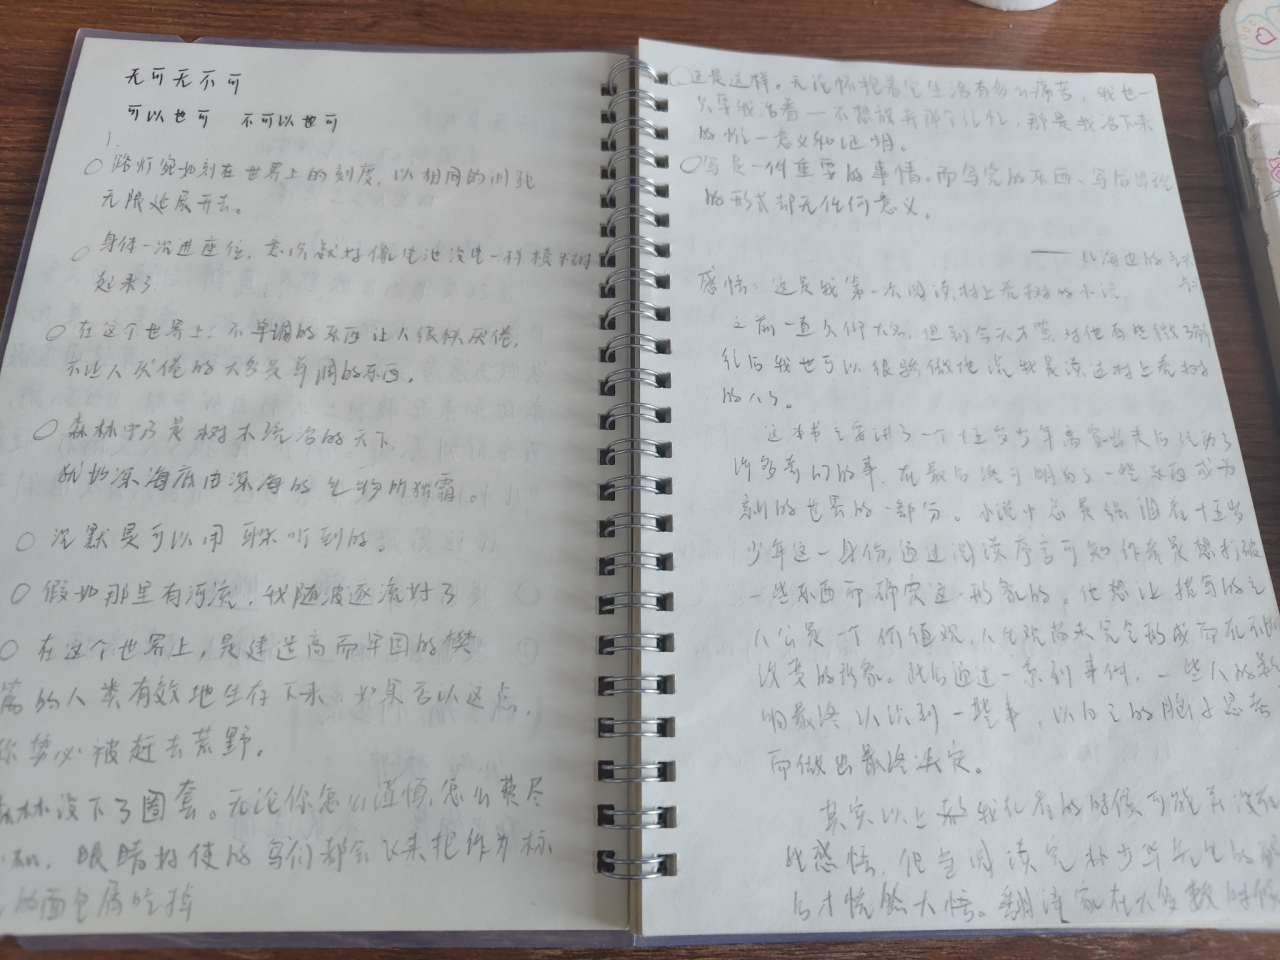 无可无不可
可以也可 不可以也可
1.
○ 路灯宛如刻在世界上的刻度，以相同的间距
无限延展开去。
○ 身体一沉进座位，意识就好像电池没电一样模糊
起来了
○ 在这个世界上，不单调的东西让人很快厌倦，
不让人厌倦的大多是单调的东西。
○ 森林中乃是树木统治的天下，
犹如深海底由深海的生物所独霸。
○ 沉默是可以用耳朵听到的。
○ 假如那里有河流，我随波逐流好了
○ 在这个世界上，是建造高而牢固的樊
篱的人类有效地生存下来，如果否认这点，
你势必被赶去荒野。
森林设下了圈套。无论你怎么谨慎，怎么费尽
心机，眼睛好使的鸟们都会飞来把作为标
的面包屑吃掉
这是这样。无论怀抱着它生活有多么痛苦，我也一
不想放弃那个记忆，那是我活下来
的唯一意义和证明。
○ 写是一件重要的事情。而写完的东西、写后出现
的形式却无任何意义。
——《海边的
感悟：这是我第一次阅读村上春树的小说，
之前一直久仰大名，但到今天才算对他有些微了解
然后我也可以很骄傲地说我是读过村上春树
的人了。
这本书主要讲了一个十五岁少年离家出走后经历了
许多奇幻的事，在最后终于明白了一些东西成为
新的世界的一部分。小说中总是强调着十五岁
少年这一身份，通过阅读序言可知作者是想打破
一些东西而确定这一形象的。他想让描写的主
人公是一个价值观、人生观尚未完全形成而在不断
改变的形象。然后通过一系列事件，一些人的影
响最终认识到一些事 以自己的脑子思考
而做出最终决定。
其实以上我看的时候可能并没有
此感悟，但当阅读完林少华先生的
后才恍然大悟。翻译家在大多数时候